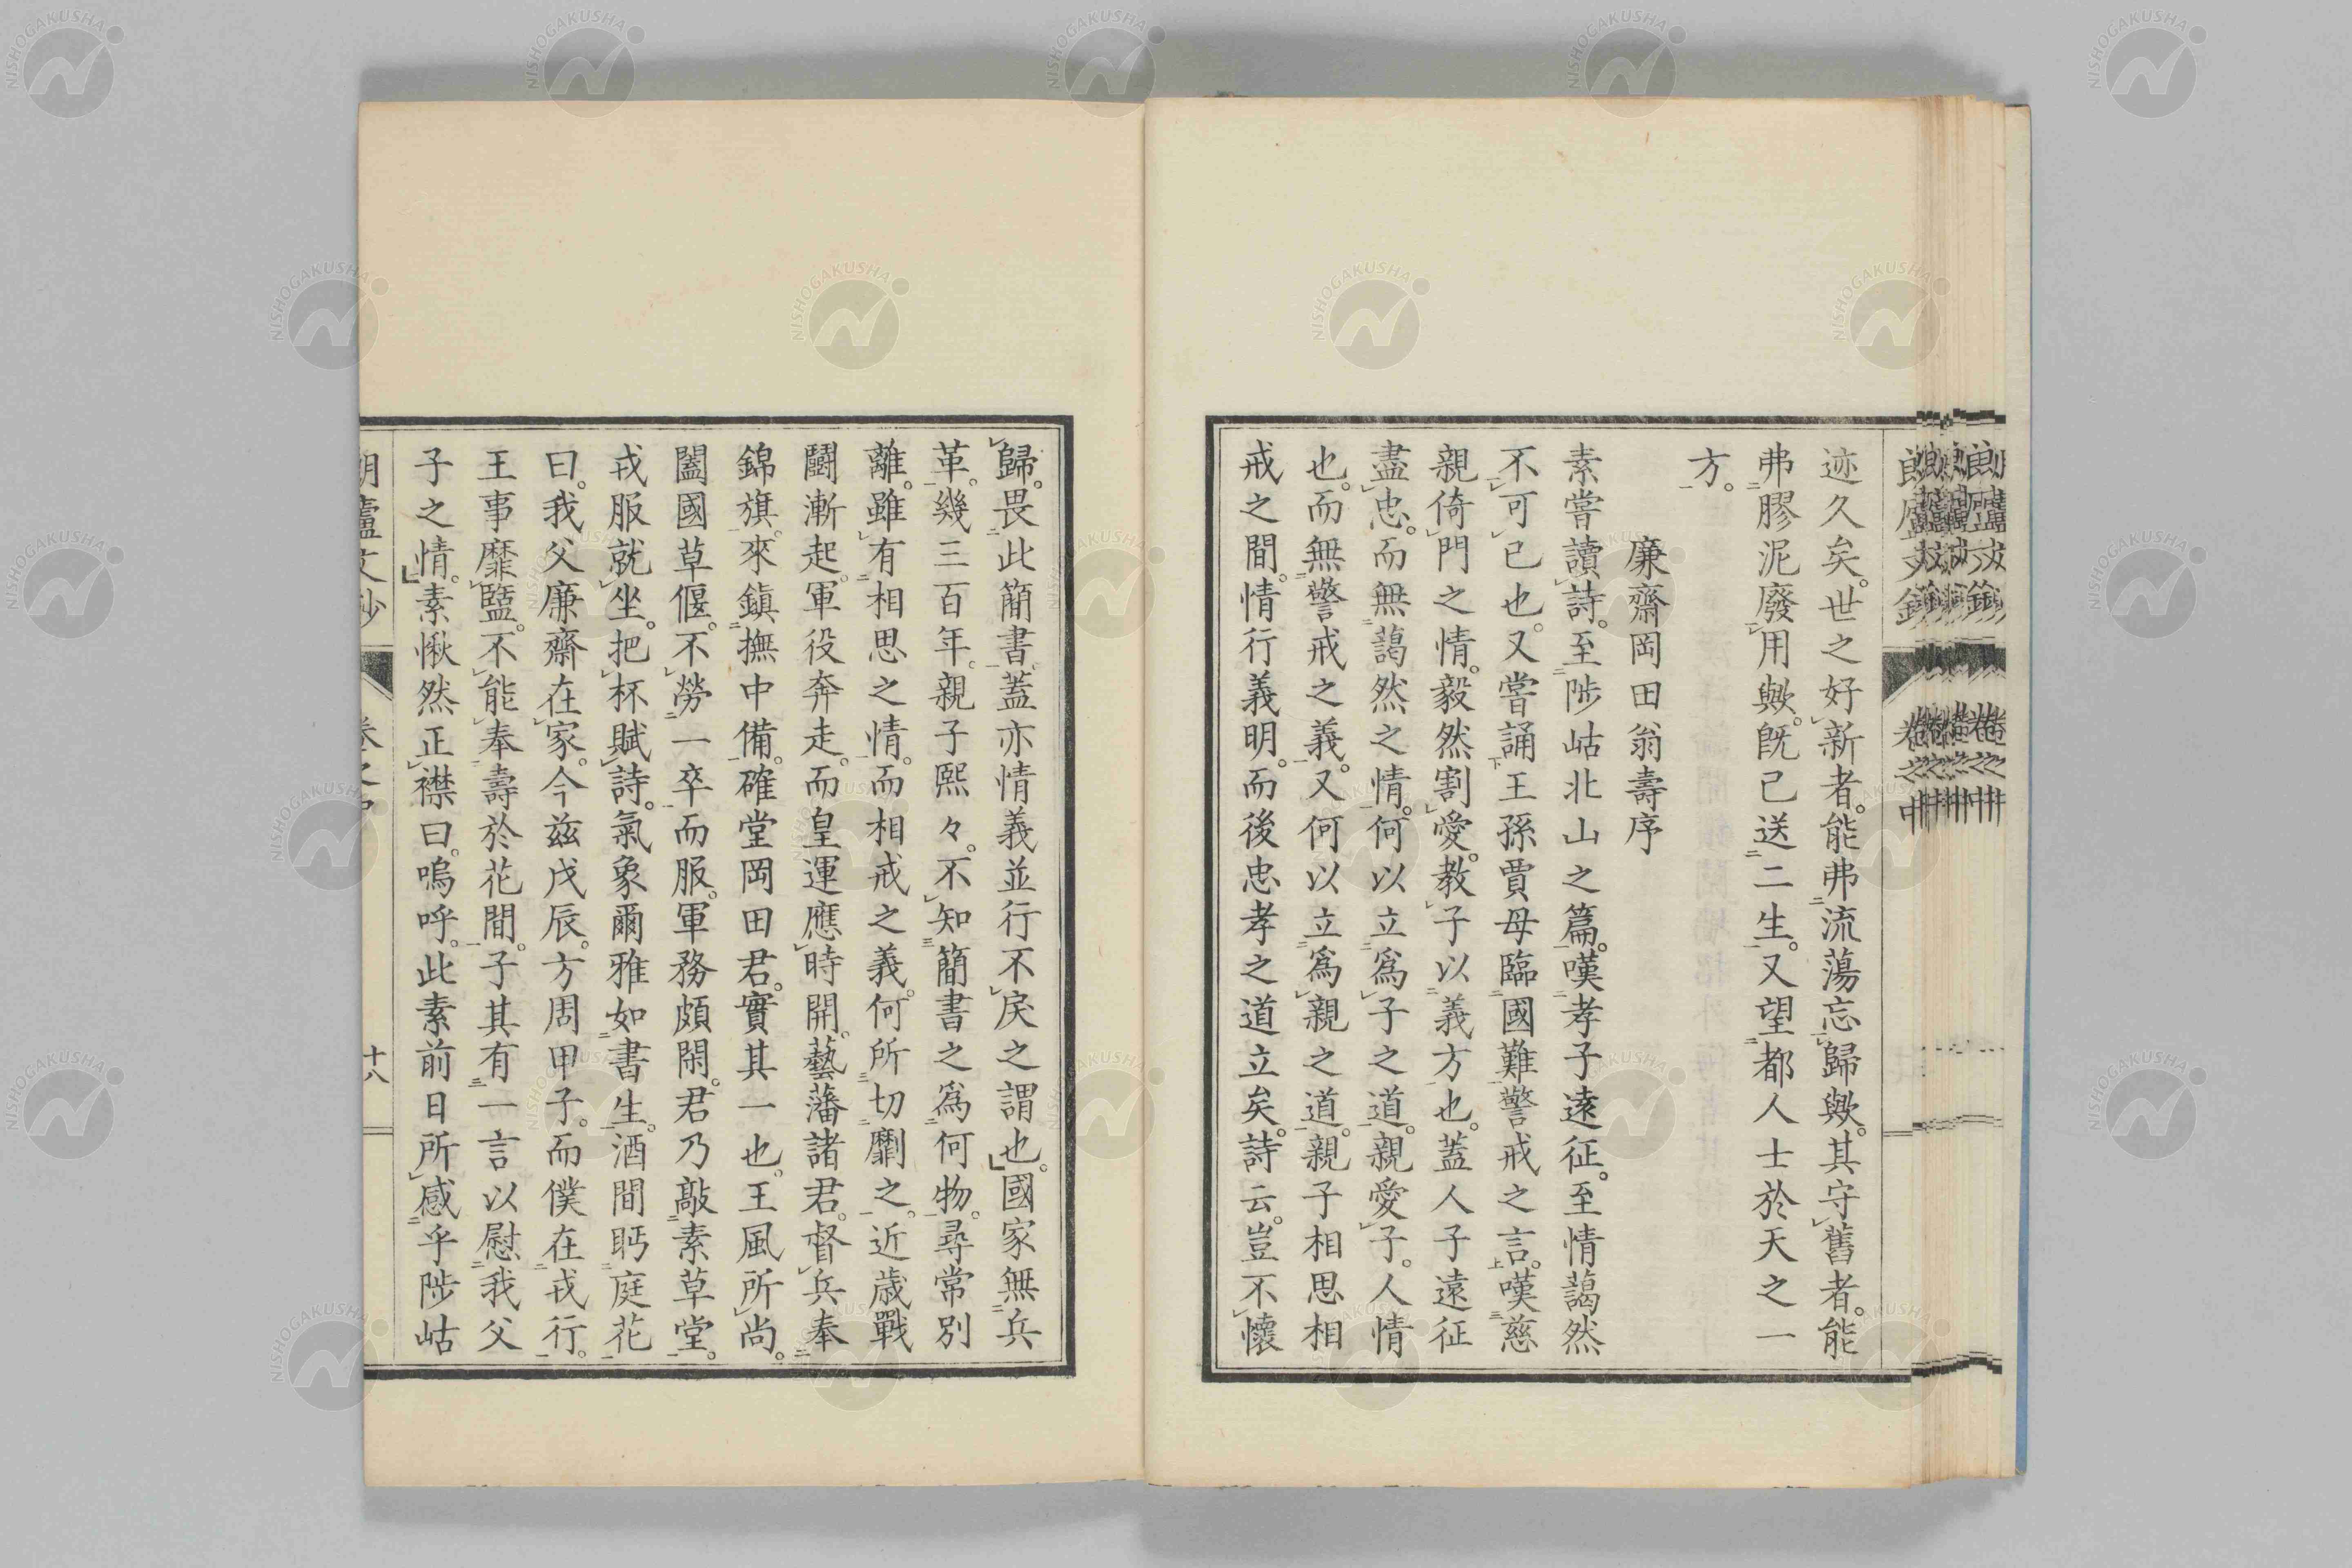 迹久矣。世之好新者。能弗流蕩忘歸歟。其守舊者。能
弗膠泥廢用歟。既已送二生。又望都人士於天之一
方。
廉齋岡田翁壽序
素嘗讀詩。至陟岵北山之篇。嘆孝子遠征。至情藹然
不可已也。又嘗誦王孫賈母臨國難警戒之言。嘆慈
親倚門之情。毅然割愛。教子以義方也。蓋人子遠征
盡忠。而無藹然之情。何以立爲子之道。親愛子。人情
也。而無警戒之義。又何以立爲親之道。親子相思相
戒之間。情行義明。而後忠孝之道立矣。詩云。豈不懷
歸。畏此簡書。蓋亦情義並行不戻之謂也。國家無兵
革。幾三百年。親子熙々。不知簡書之爲何物。尋常別
離。雖有相思之情。而相戒之義。何所切劘之。近歲戰
鬪漸起。軍役奔走。而皇運應時開。藝藩諸君。督兵奉
錦旗。來鎮撫中備。確堂岡田君。實其一也。王風所尚。
闔國草偃。不勞一卒而服。軍務頗閑。君乃敲素草堂。
戎服就坐。把杯賦詩。氣象爾雅如書生。酒間眄庭花
曰。我父廉齋在家。今茲戊辰。方周甲子。而僕在戎行。
王事靡盬。不能奉壽於花間。子其有一言以慰我父
子之情。素愀然正襟曰。嗚呼。此素前日所感乎陟岵
十八
NISHOGAKUSHA